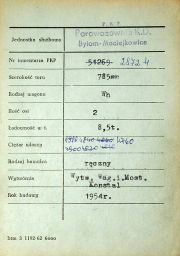 P K P
Jednostka służbowa
Parowozownia K.D.
Bytom-Maciejkowice
Nr inwentarza PKP 54269 2872 4
Szerokość toru 785mm
Rodzaj wagonu Wh
Ilość osi 2
Ładowność w t. 8,5t.
Ciężar własny
Rodzaj hamulca ręczny
Wytwórnia Wytw. Wag.i.Most.
Konstal
Rok budowy 1954r.